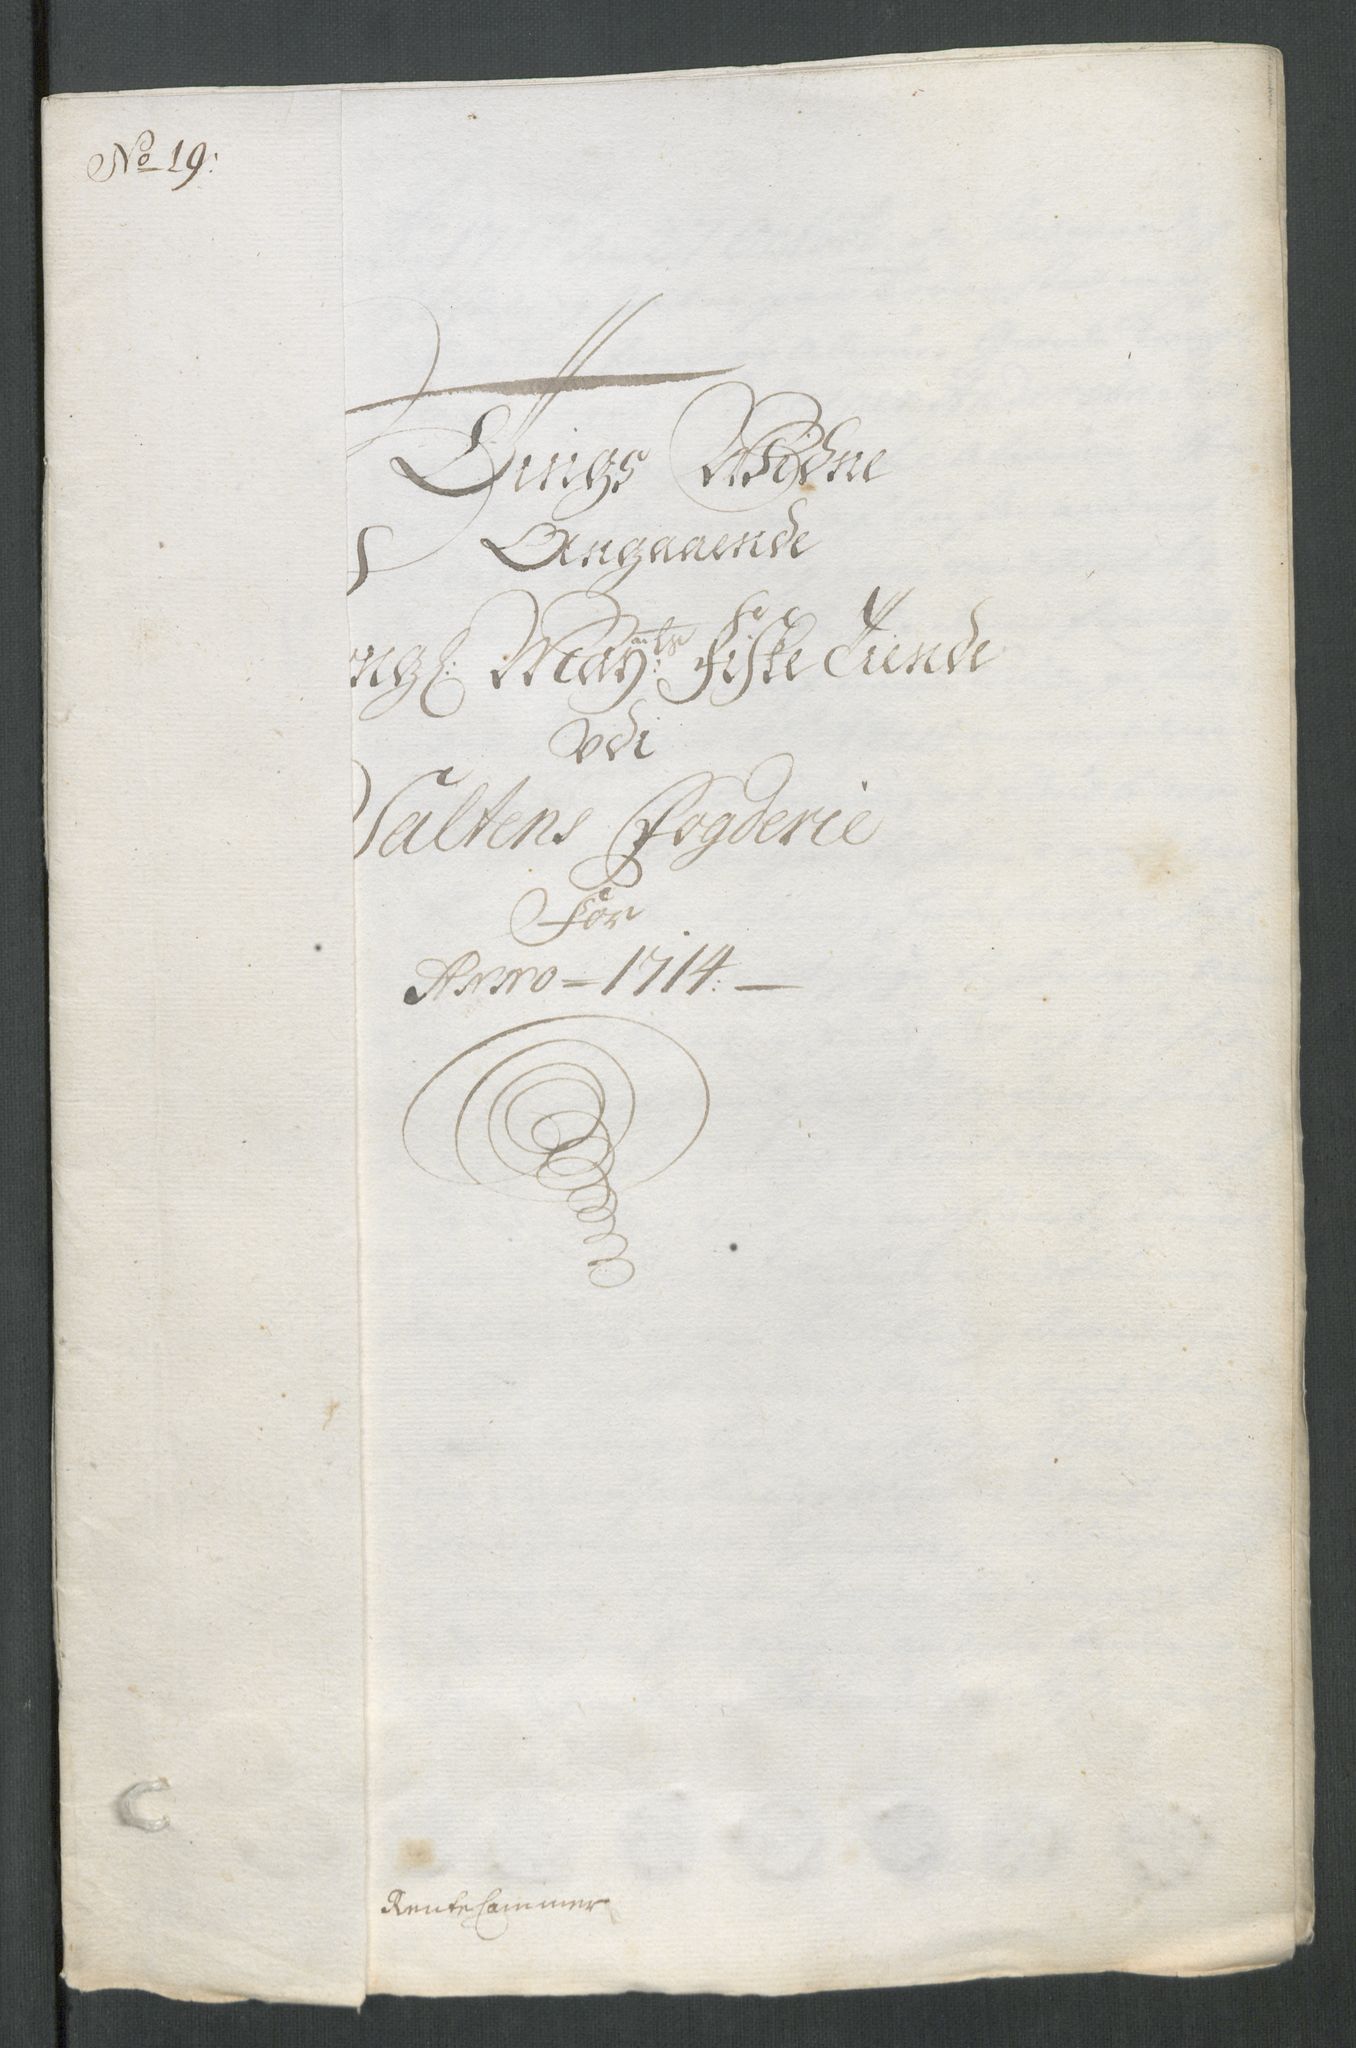 No 19:
Tings Widne
Angaaende
ngl: Mayts: Fiske Tiende
udi
Saltens Fogderie
For
Anno - 1714: -
Rente Cammer